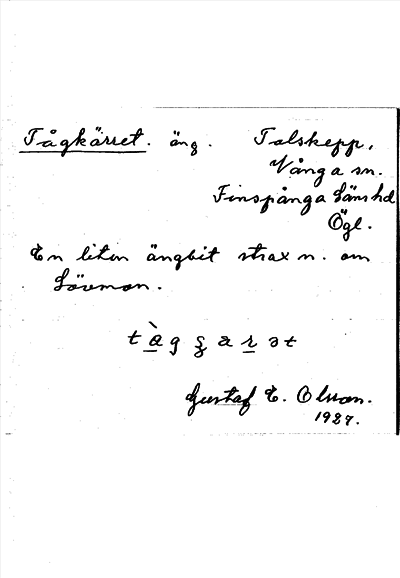 Tågkärret. äng. Talskepp,
Vånga sn.
Finspånga Läns hd
Ögl.
En liten ängbit strax n. om
Lövmon.
t à g ȿ a r ə t
Gustaf E. Olsson.
1927.